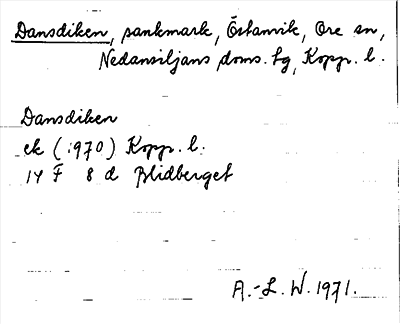 Dansdiken, sankmark, Östanvik, Ore sn,
Nedansiljans doms. tg, Kopp. l.
Dansdiken
ek (1970) Kopp. l.
14 F 8 d Blidberget
A.-L. W. 1971.